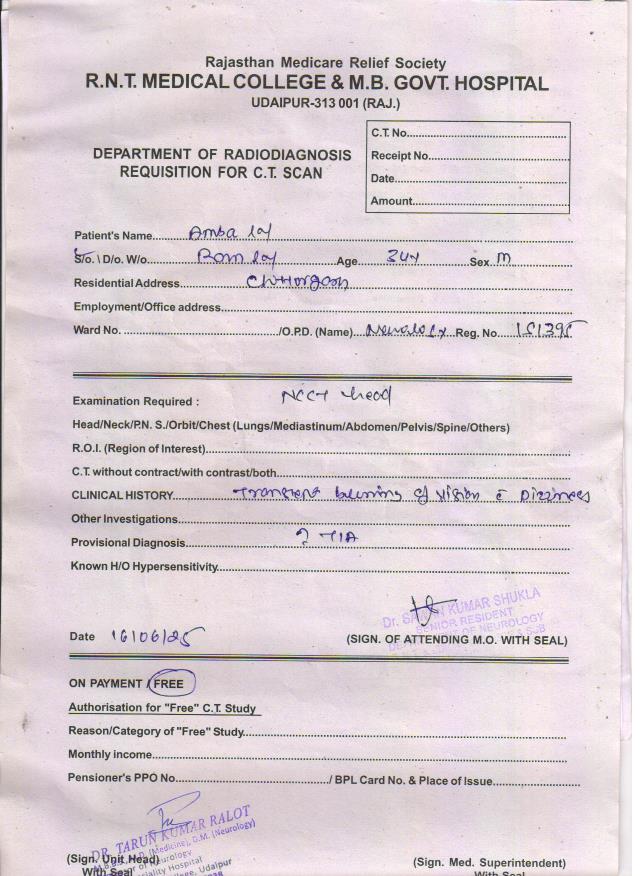 Rajasthan Medicare Relief Society
R.N.T. MEDICAL COLLEGE & M.B. GOVT. HOSPITAL
UDAIPUR-313 001 (RAJ.)
C.T. No.
DEPARTMENT OF RADIODIAGNOSIS
REQUISITION FOR C.T. SCAN
Receipt No.
Date
Amount
Patient's Name Amba lal
S/o. \ D/o. W/o Ram lal Age 34y Sex M
Residential Address
Employment/Office address
Ward No. /O.P.D. (Name) Neurology Reg. No. 151395
Examination Required : NCCT head
Head/Neck/P.N. S./Orbit/Chest (Lungs/Mediastinum/Abdomen/Pelvis/Spine/Others)
R.O.I. (Region of Interest)
C.T. without contract/with contrast/both
CLINICAL HISTORY Transient of vision c̄ Dizziness
Other Investigations
Provisional Diagnosis ? TIA
Known H/O Hypersensitivity
Dr. KUMAR SHUKLA
SENIOR RESIDENT
DEPARTMENT OF NEUROLOGY
Date 16/06/25 (SIGN. OF ATTENDING M.O. WITH SEAL)
ON PAYMENT / FREE
Authorisation for "Free" C.T. Study
Reason/Category of "Free" Study
Monthly income
Pensioner's PPO No. / BPL Card No. & Place of Issue
DR. TARUN KUMAR RALOT
(Medicine), D.M. (Neurology)
of Neurology
Hospital
College, Udaipur
(Sign. Unit Head) (Sign. Med. Superintendent)
With Seal With Seal